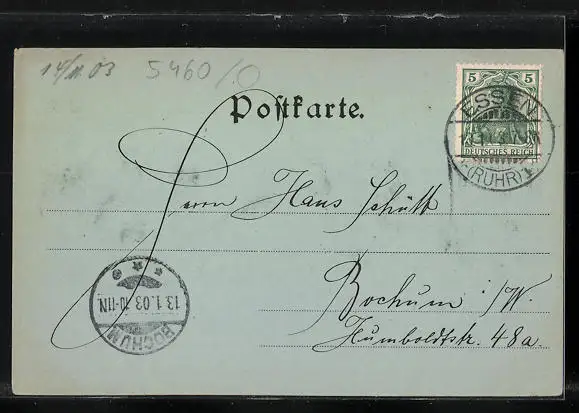 14/11.03
5460/0
Postkarte.
5 5
DEUTSCHES REICH
ESSEN
(RUHR) 1
Herrn Hans Schütt
Bochum i/W.
Humboldtstr. 48a.
BOCHUM
13.1.03.10-11N.